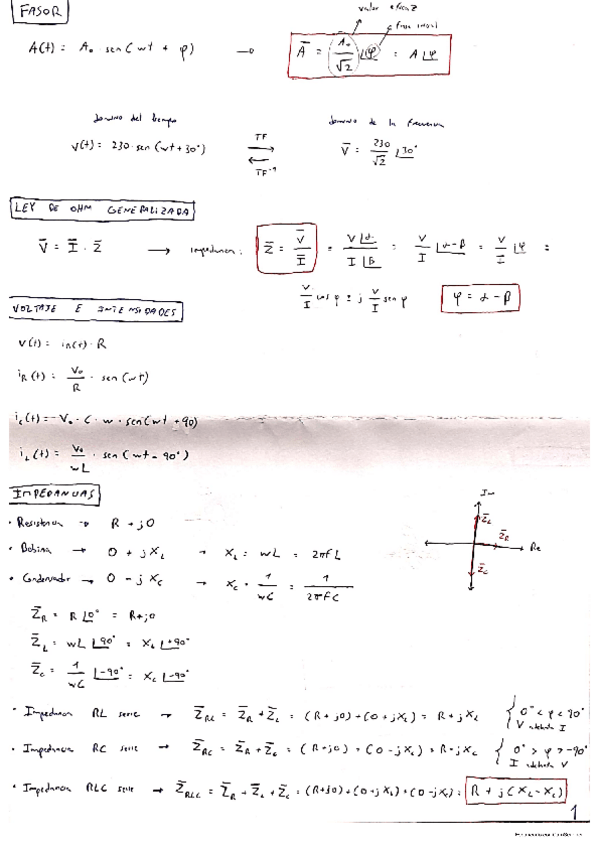 FASOR
valor eficaz
fase inicial
A(t) = A₀ · sen(wt + φ) → Ā = A₀/√2 ∠φ = A ∠φ
dominio del tiempo
dominio de la frecuencia
v(t) = 230 · sen(wt + 30°)
TF
TF⁻¹
V̄ = 230/√2 ∠30°
LEY DE OHM GENERALIZADA
V̄ = Ī · Z̄ → impedancia: Z̄ = V̄/Ī = V∠α/I∠β = V/I ∠α-β = V/I ∠φ =
V/I cos φ ± j V/I sen φ
φ = α - β
VOLTAJE E INTENSIDADES
v(t) = iR(t) · R
iR(t) = V₀/R · sen(wt)
ic(t) = V₀ · C · w · sen(wt + 90)
iL(t) = V₀/wL · sen(wt - 90°)
IMPEDANCIAS
Im
Z̄L
Z̄R
Re
Z̄C
· Resistencia → R + j0
· Bobina → 0 + jXL → XL = wL = 2πfL
· Condensador → 0 - jXC → XC = 1/wC = 1/2πfC
Z̄R = R∠0° = R+j0
Z̄L = wL ∠90° = XL∠+90°
Z̄C = 1/wC ∠-90° = XC∠-90°
· Impedancia RL serie → Z̄RL = Z̄R + Z̄L = (R+j0) + (0+jXL) = R+jXL { 0° < φ < 90°
V adelanta I
· Impedancia RC serie → Z̄RC = Z̄R + Z̄C = (R+j0) + (0-jXC) = R-jXC { 0° > φ > -90°
I adelanta V
· Impedancia RLC serie → Z̄RLC = Z̄R + Z̄L + Z̄C = (R+j0) + (0+jXL) + (0-jXC) = R + j(XL - XC)
1